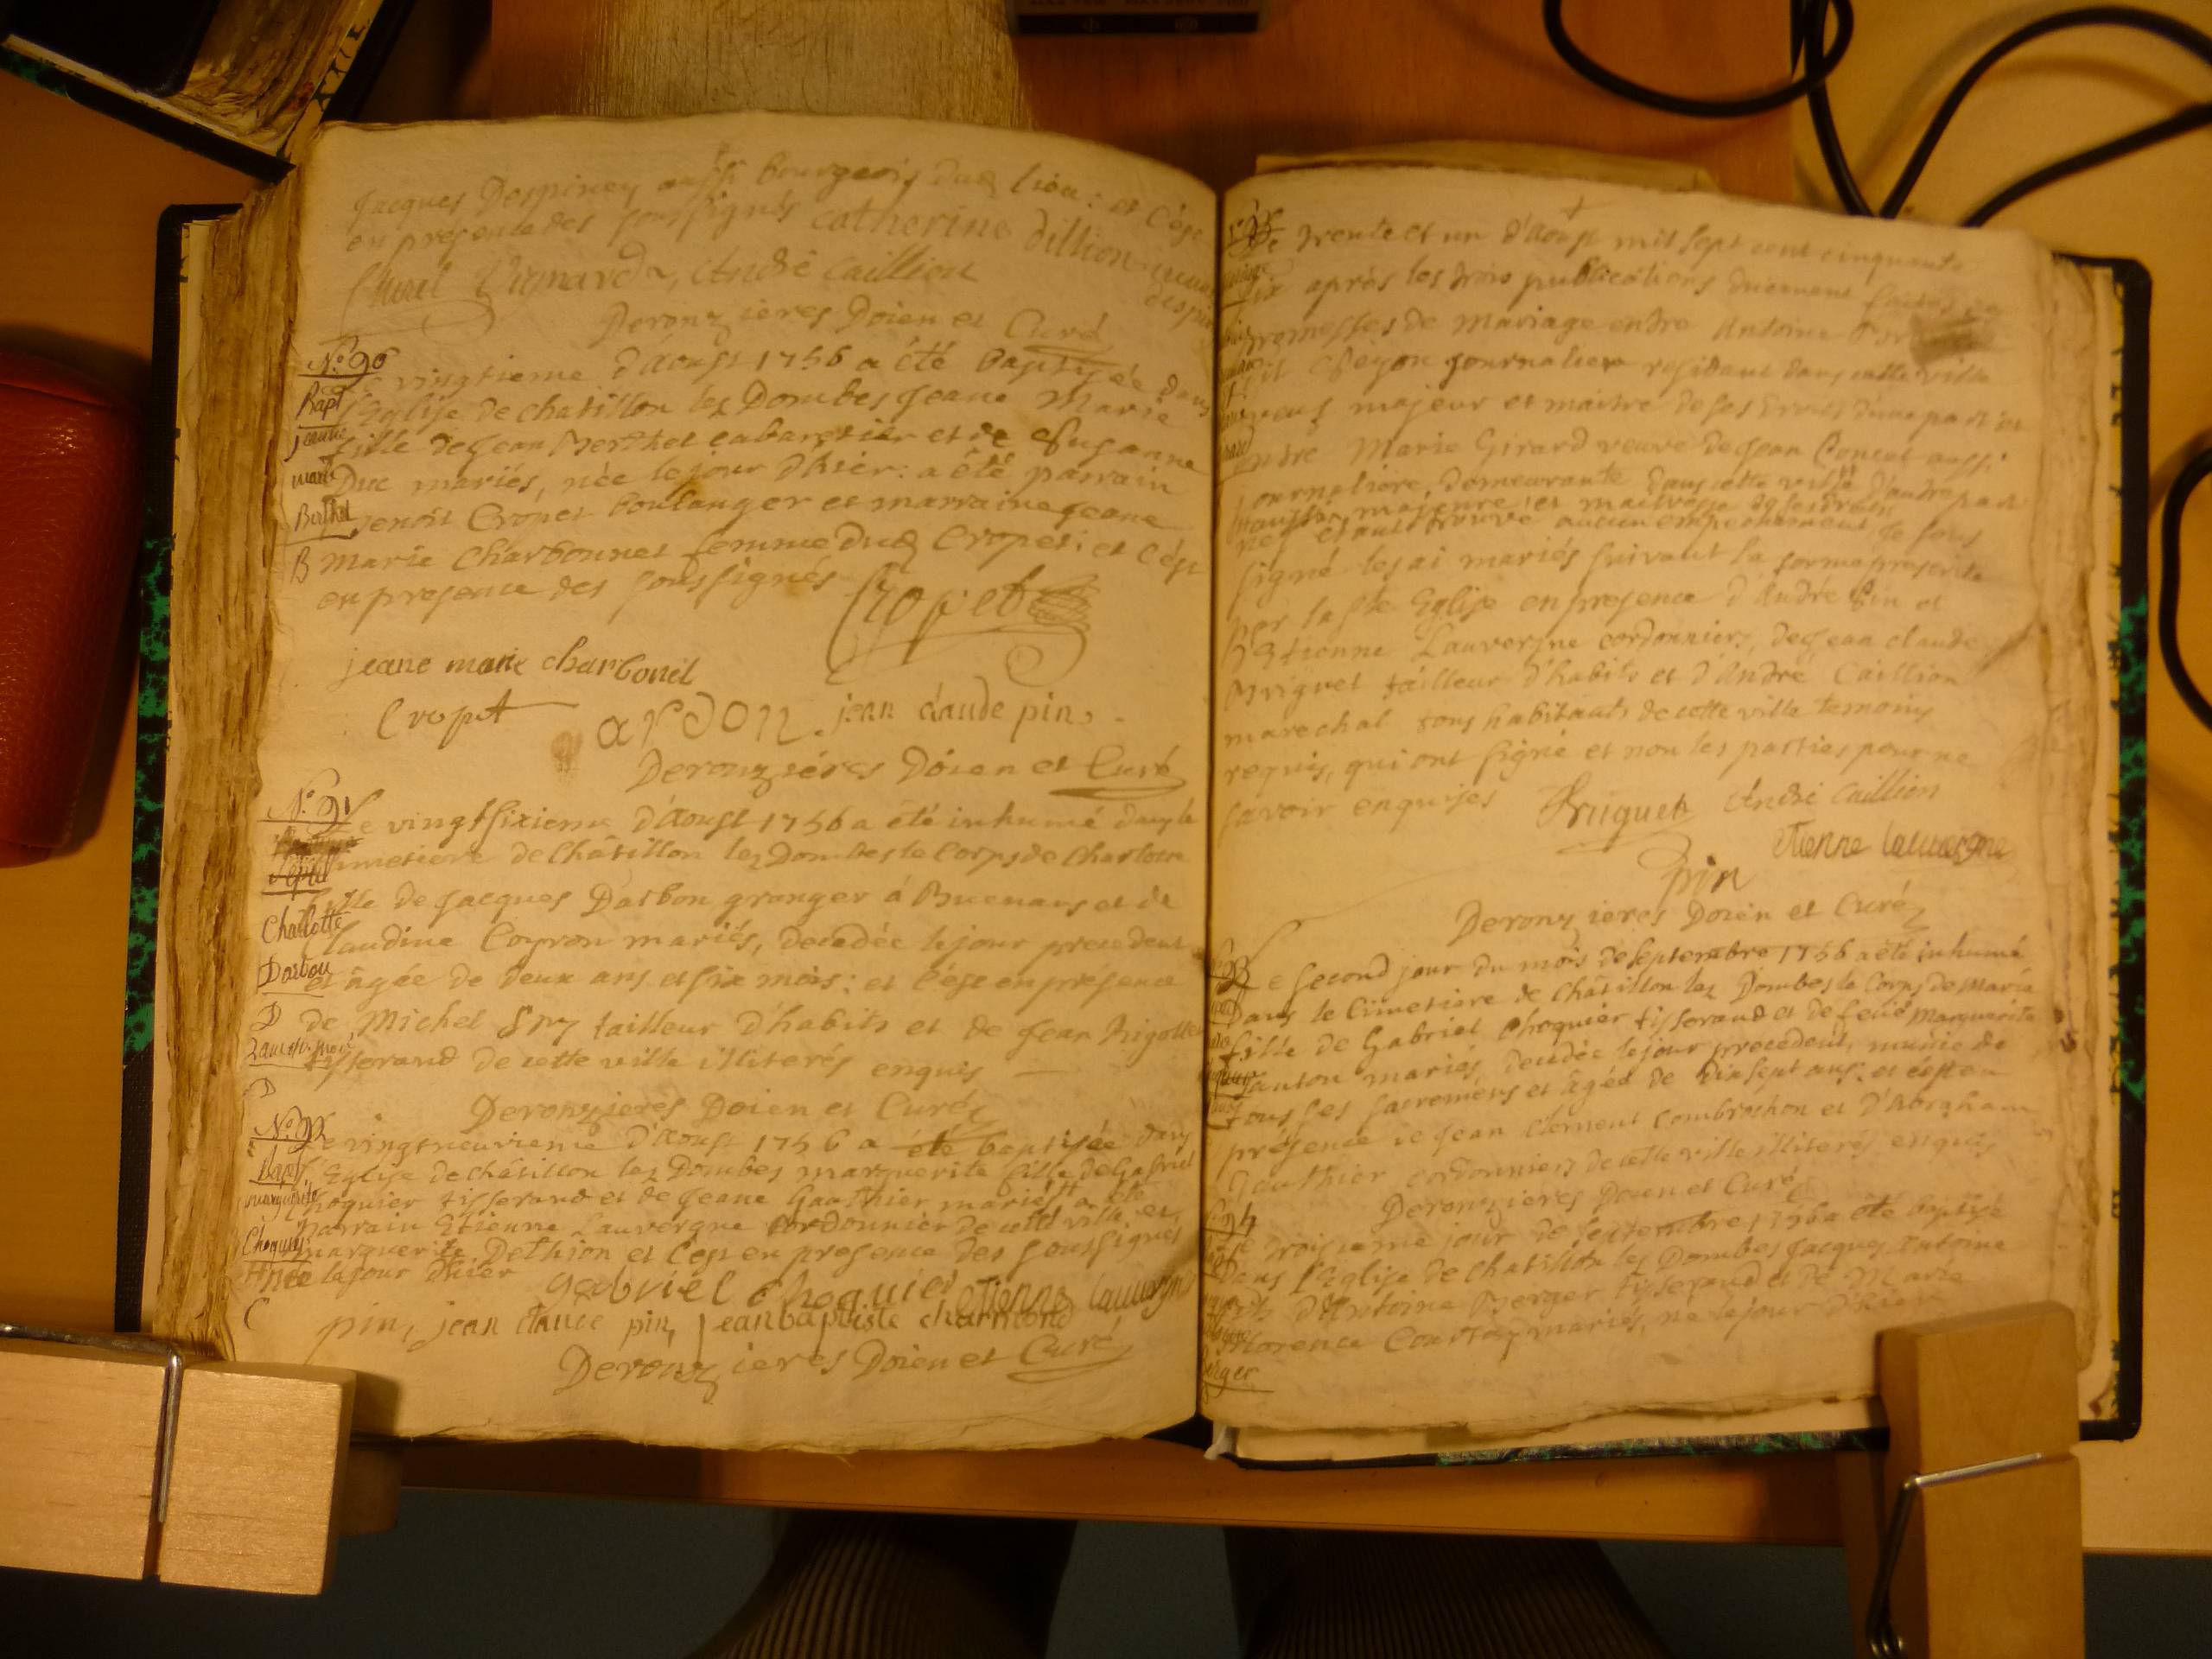 Jacques Despiney aussi bourgeois dud lieu: et c'est
en presence des soussignés catherine dillion
Vignard, André Caillion
Deronzieres Doien et Curé
N.° 90
Le vingtieme d'Aoust 1756 a été baptisée dans
Bapt l'Eglise de chatillon lez Dombes Jeane Marie
jeanne fille de Jean Berthet cabaretier et de Susanne
marie Duc mariés, née le jour d'hier: a été parrain
Berthet Benoit Cropet boulanger et marraine jeane
B marie Charbonnet femme dud Cropet: et c'est
en presence des soussignés Cropet
jeane marie charbonet
Cropet ardon jean claude pin
Deronzieres Doien et Curé
N.° 91
Le vingt sixieme d'Aoust 1756 a été inhumé dans le
Sepul cimetiere de Châtillon lez Dombes le Corps de Charlotte
fille de Jacques Darbon granger à Buenans et de
Charlotte Claudine Coyron mariés, decedée le jour precedent
Darbon et âgée de deux ans et six mois: et c'est en présence
D de Michel Sry tailleur d'habits et de Jean Rigollet
2 ans six mois tisserand de cette ville illiterés enquis
D
Deronzieres Doien et Curé
N.° 92
Le vingt neuvieme d'Aoust 1756 a été baptisée dans
Bapt l'Eglise de châtillon lez Dombes marguerite fille de Gabriel
marguerite Choquier tisserand et de Jeane Gauthier mariés a été
parrain Etienne Lauvergne cordonnier de cette ville et
Choquier marguerite Dethion et c'est en presence des soussignés
née le jour d'hier gabriel choquier Etienne lauvergne
C pin, jean claude pin, jean baptiste charmond
Deronzieres Doien et Curé
Le trente et un d'Aoust mil sept cent cinquante
six après les trois publications duement faites
promesses de Mariage entre Antoine
dit journalier residant dans cette ville
veuf majeur et maitre de ses droits d'une part et
entre Marie Girard veuve de Jean Poncet aussi
journaliere, demeurante dans cette ville d'autre part
aussi majeure et maitresse de ses droits
ne s'etant trouvé aucun empechement, je sous
signé les ai mariés suivant la forme prescrite
par la Ste Eglise en presence d'André Pin et
d'Etienne Lauvergne cordonniers, de Jean claude
Bruguet tailleur d'habits et d'André Caillion
marechal tous habitants de cette ville temoins
requis, qui ont signé et non les parties pour ne
savoir enquises Bruguet André Caillion
Etienne lauvergne
pin
Deronzieres Doien et Curé
93
Le second jour du mois de septembre 1756 a été inhumé
dans le Cimetiere de Châtillon lez Dombes le Corps de Marie
fille de Gabriel Choquier tisserand et de feüe Marguerite
Janton mariés, decedée le jour precedent, munie de
tous ses sacremens et âgée de dix sept ans: et c'est en
présence de Jean Clement Combrochon et d'Abraham
Gauthier cordonniers de cette ville illiterés enquis
Deronzieres Doien et Curé
94
Le troisieme jour de Septembre 1756 a été baptisé
dans l'Eglise de chatillon lez Dombes Jacques Antoine
fils d'Antoine Berger tisserand et de Marie
florence Courtay mariés, né le jour d'hier
Berger